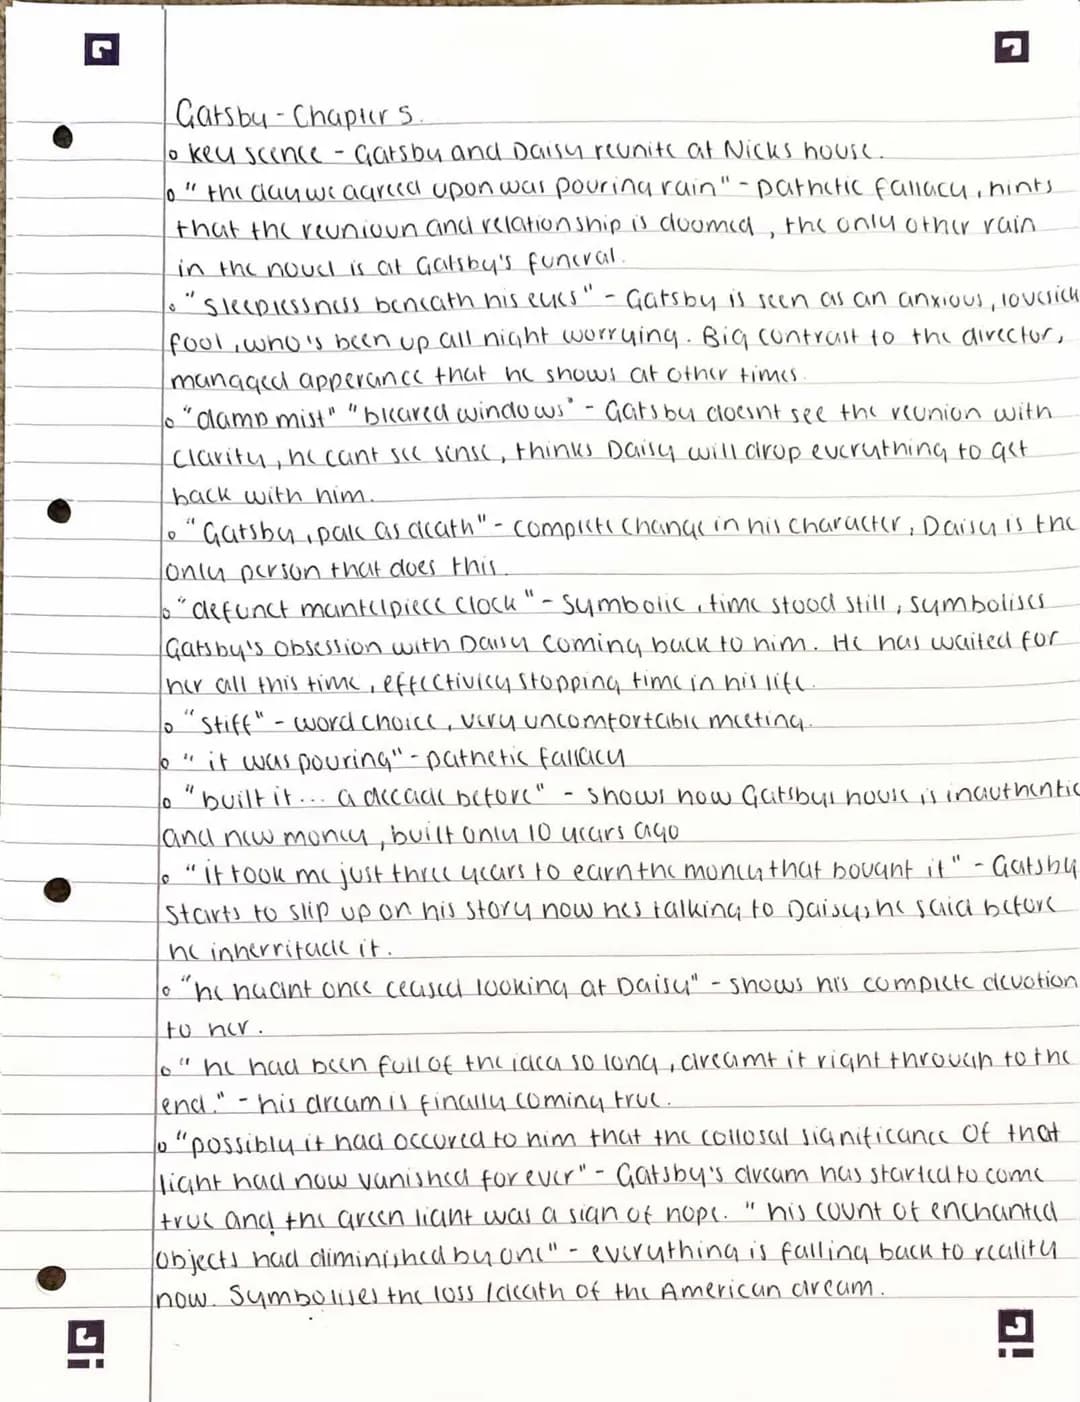 Gatsby - Chapter 5.
o key scence - Gatsby and Daisy reunite at Nicks house.
o " the day we agreed upon was pouring rain" - pathetic fallacy, hints
that the reunioun and relationship is doomed, the only other rain
in the novel is at Gatsby's funeral.
o "sleeplessness beneath his eyes" - Gatsby is seen as an anxious, lovesick
fool, who's been up all night worrying. Big contrast to the director,
managed apperance that he shows at other times.
o "damp mist" "bleared windows" - Gatsby doesnt see the reunion with
clarity, he cant see sense, thinks Daisy will drop everything to get
back with him.
o "Gatsby, pale as death" - complete change in his character, Daisy is the
only person that does this.
o "defunct mantelpiece clock" - Symbolic, time stood still, symbolises
Gatsby's obsession with Daisy coming back to him. He has waited for
her all this time, effectivley stopping time in his life.
o "stiff" - word choice, very uncomfortable meeting.
o " it was pouring" - pathetic fallacy
o "built it... a decade before" - shows how Gatsbys house is inauthentic
and new money, built only 10 years ago
o "it took me just three years to earn the money that bought it" - Gatsby
starts to slip up on his story now hes talking to Daisy, he said before
he inherritade it.
o "he hadnt once ceased looking at Daisy" - shows his complete devotion
to her.
o " he had been full of the idea so long, dreamt it right through to the
end." - his dream is finally coming true.
o "possibly it had occured to him that the collosal significance of that
light had now vanished forever" - Gatsby's dream has started to come
true and the green light was a sign of hope. " his count of enchanted
objects had diminished by one" - everything is falling back to reality
now. Symbolises the loss / death of the American dream.